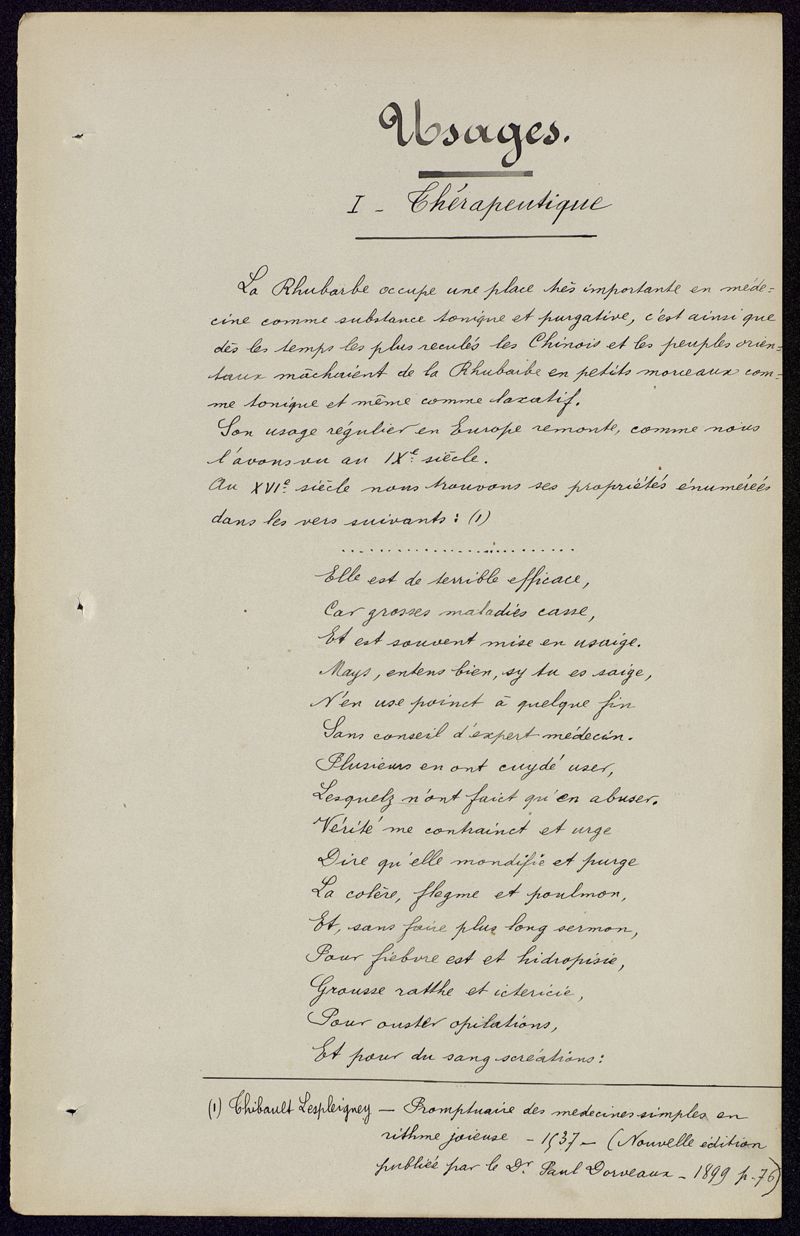 Usages.
I - Thérapeutique
La Rhubarbe occupe une place très importante en méde=
cine comme substance tonique et purgative, c'est ainsi que
dès les temps les plus reculés les Chinois et les peuples orien=
taux mâchaient de la Rhubarbe en petits morceaux com=
me tonique et même comme laxatif.
Son usage régulier en Europe remonte, comme nous
l'avons vu au IXe siècle.
Au XVIe siècle nous trouvons ses propriétés énumérées
dans les vers suivants : (1)
..........................
Elle est de terrible efficace,
Car grosses maladiës casse,
Et est souvent mise en usaige.
Mays, entens bien, sy tu es saige,
N'en use poinct à quelque fin
Sans conseil d'expert médecin.
Plusieurs en ont cuydé user,
Lesquelz n'ont faict qu'en abuser.
Vérité me contrainct et urge
Dire qu'elle mondifie et purge
La colère, flegme et poulmon,
Et, sans faire plus long sermon,
Pour fiebvre est et hidropisie,
Grousse ratthe et ictericie,
Pour ouster opilations,
Et pour du sang screations :
(1) Thibault Lespleigney — Promptuaire des medecines simples en
rithme joieuse - 1537 - (Nouvelle édition
publiée par le Dr Paul Dorveaux - 1899 p. 76)